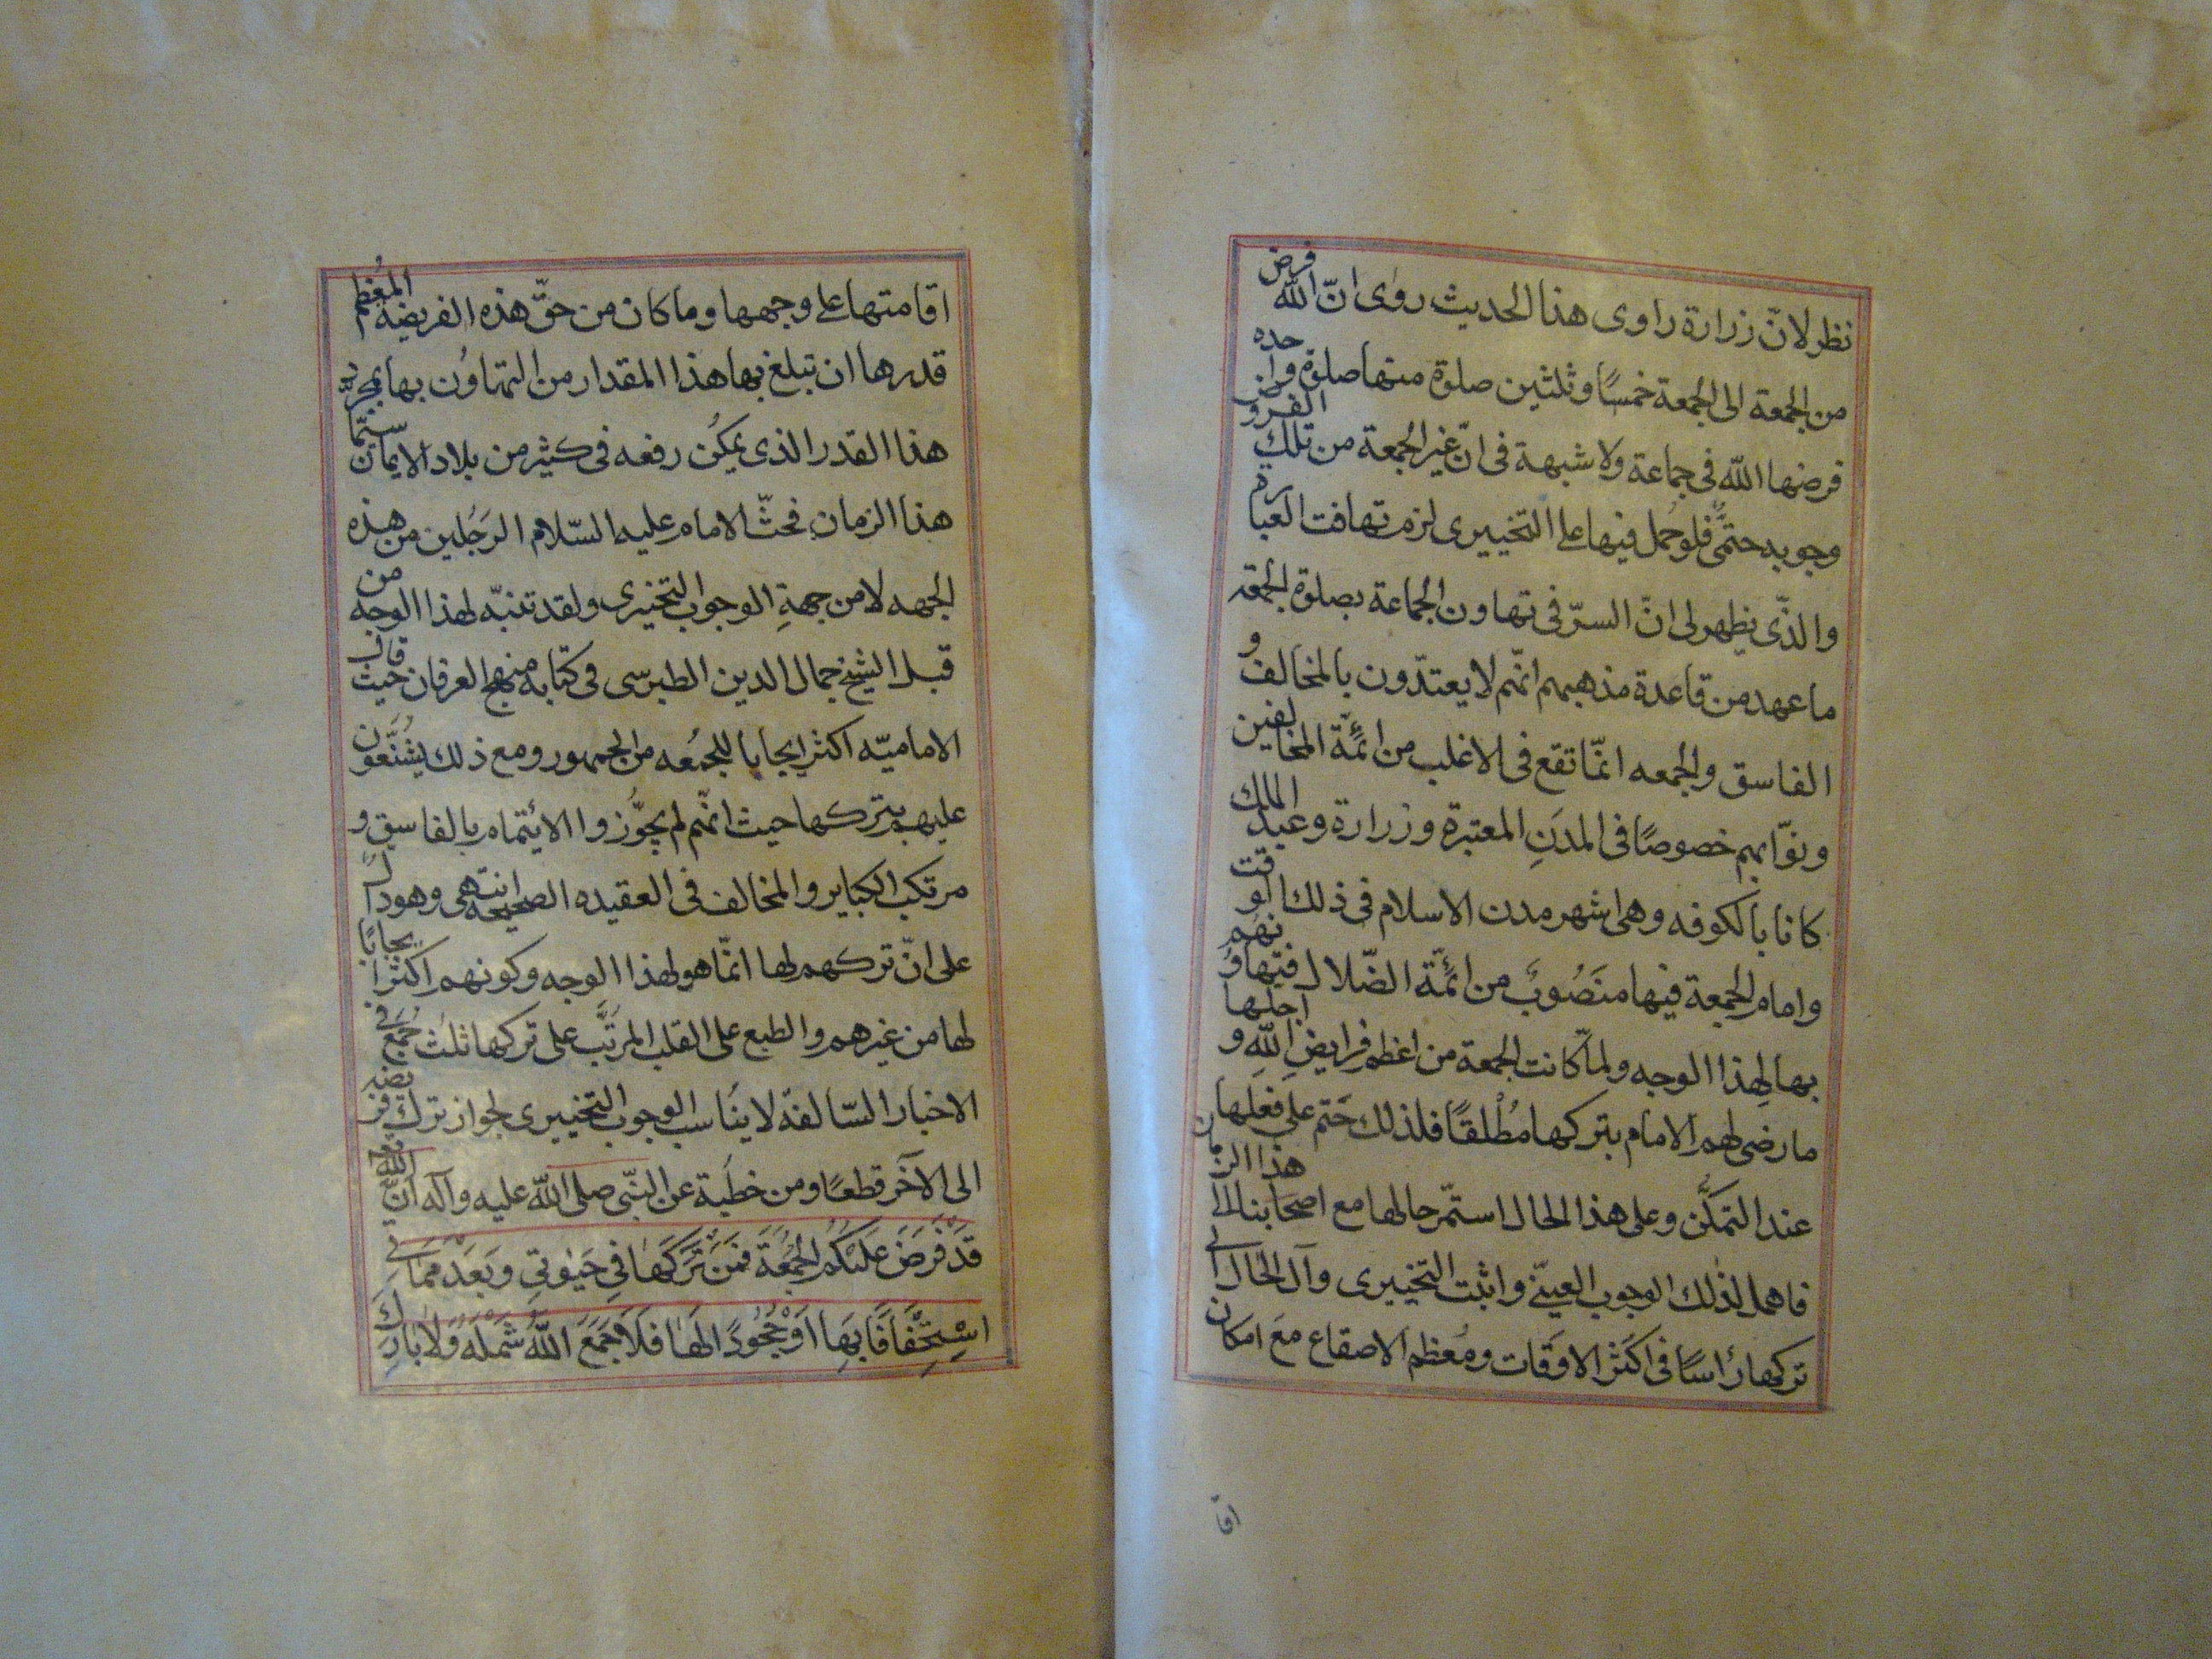 نظر لانّ زرارة راوى هذا الحديث روى انّ الله فرض
من الجمعة الى الجمعة خمسًا وثلثين صلوة منها صلوة واحده
فرضها الله فى جماعة ولا شبهة فى انّ غير الجمعة من تلك الفروض
وجوبه حتمىّ فلو حمل فيها على التخييرى لزم تهافت العبارة
والذّى يظهر لى انّ السرّ فى تهاون الجماعة بصلوة الجمعة
ما عهد من قاعدة مذهبهم انّهم لا يعتدّون بالمخالف و
الفاسق والجمعه انّما تقع فى الاغلب من ائمّة المخالفين
ونوّابهم خصوصًا فى المدنِ المعتبرة وزرارة وعبد الملك
كانا بالكوفه وهى اشهر مدن الاسلام فى ذلك الوقت
وامام الجمعة فيها منصُوبٌ من ائمّة الضّلال فتهاونهم
بها لهذا الوجه ولمّا كانت الجمعة من اعظم فرايضِ اللهِ و اجلّها
ما رضى لهم الامام بتركها مُطْلقًا فلذلك حَتم على فعلها
عند التمكّن وعلى هذا الحال استمّر حالها مع اصحابنا الى هذا الزمان
فاهمل لذلك الوجوب العينّى واثبت التخييرى وآل الحال الى
تركها رأسًا فى اكثر الاوقات ومُعظم الاصقاع معَ امكان
اقا
اقامتها على وجهها وما كان من حقّ هذه الفريضة المُعظم
قدرها ان تبلغ بها هذا المقدار من التهاوُن بها بمجرّد
هذا القدر الذى يمكن رفعه فى كثير من بلاد الايمان سيّما
هذا الزمان فحثّ الامام عليه السّلام الرَجُلين من هذه
الجهه لا من جهةِ الوجوب التخييرى ولقد تنبّه لهذا الوجه من
قبل الشيخ جمال الدين الطبرسى فى كتابه منهج العرفان حيث قال
الاماميّه اكثر ايجابا للجمُعه من الجمهور ومع ذلك يُشنّعون
عليهم بتركها حيث انّهم لم يجوّزوا الايتمام بالفاسق و
مرتكب الكباير والمخالف فى العقيده الصحيحة انتهى وهو دالّ
على انّ تركهم لها انّما هو لهذا الوجه وكونهم اكثر ايجابًا
لها من غيرهم والطبع على القلب المرتّب على تركها ثلث جُمَع فى
الاخبار السّالفة لا يناسب الوجوب التخييرى لجواز ترك فريضة
الى الآخر قطعًا ومن خطبة عن النبّى صلى الله عليه وآله انّ الله
قَدْ فَرَضَ عَلَيْكُم الجُمُعَةَ فَمَنْ تَرَكَهَا فِى حَيٰوتى وَبَعْدَ مَمَاتى
اسْتِخْفَافًا بِهَا اَوْ جُحُودًا لَهَا فَلَا جَمَعَ اللّهُ شَمْلَهُ وَلَا بَارَكَ